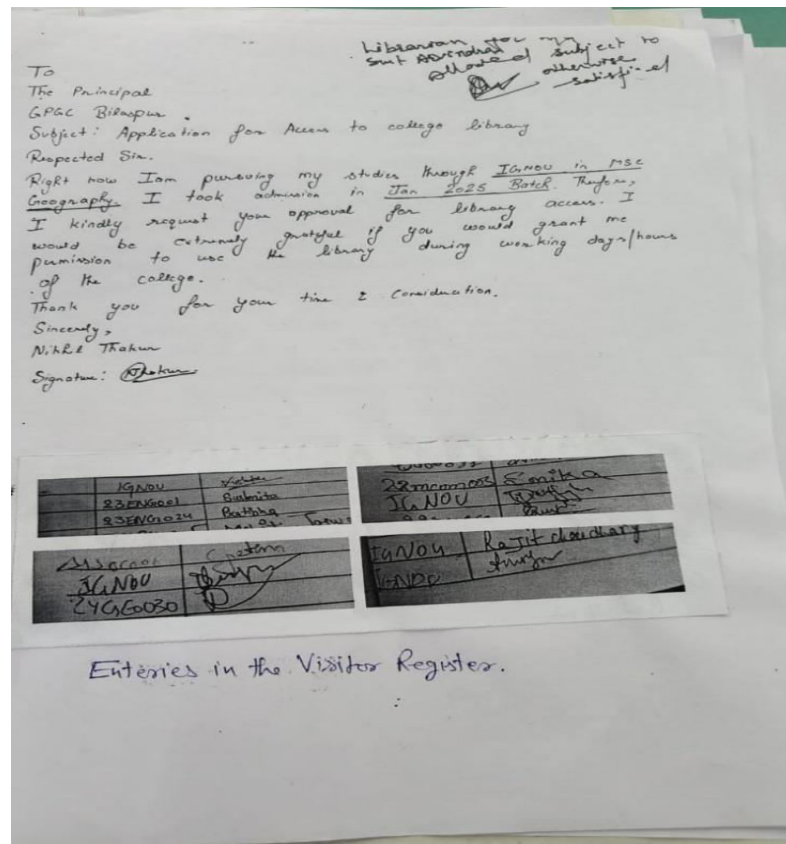 Librarian for
allowed subject to
otherwise
satisfied
To
The Principal
GPGC Bilaspur.
Subject: Application for Access to college library
Respected Sir.
Right now I am pursuing my studies through IGNOU in MSC
Geography. I took admission in Jan 2025 Batch. Therefore,
I kindly request your approval for library access. I
would be extremely grateful if you would grant me
permission to use the library during working days/hours
of the college.
Thank you for your time & Consideration.
Sincerely,
Nikhil Thakur
Signature: NThakur
IGNOU
23ENG001
23ENG024
IGNOU
24GEO030
22mcom003 Smika
IGNOU
IGNOU Rajit choudhary
IGNOU
Enteries in the Visitor Register.